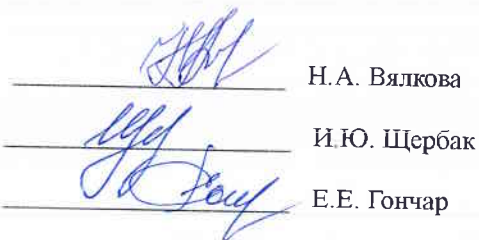 Н.А. Вялкова
И.Ю. Щербак
Е.Е. Гончар